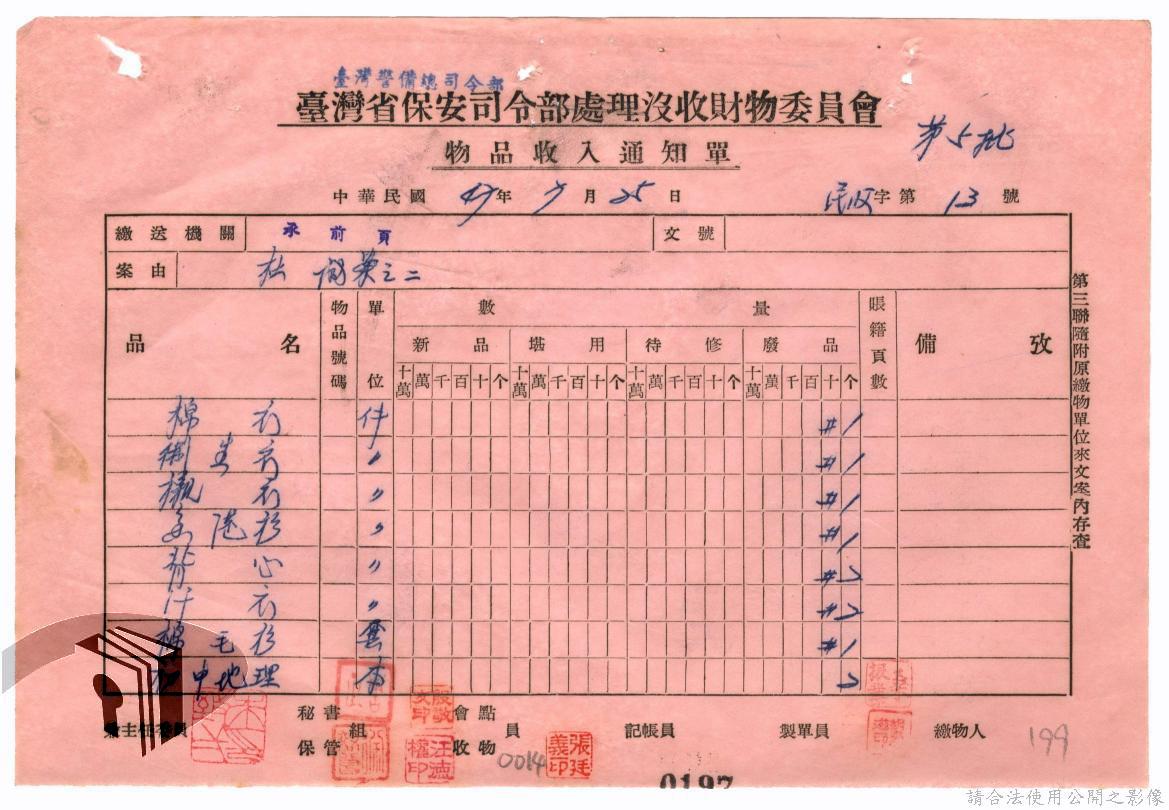 臺灣警備總司令部
臺灣省保安司令部處理沒收財物委員會
物品收入通知單
第5批
中華民國 47年 7月 25日
字第 13 號
繳送機關 承前頁 文號
案由 杜 之二
品名 物品號碼 單位 數量 賬籍頁數 備攷
新品 堪用 待修 廢品
十萬 萬 千 百 十 个 十萬 萬 千 百 十 个 十萬 萬 千 百 十 个 十萬 萬 千 百 十 个
棉衣 件 #1
制 衣 〃 #1
襯衣 〃 #1
衫 〃 #1
背心 〃 #2
汗衣 〃 #2
棉毛衫 套 #1
初中地理 本 2
第三聯隨附原繳物單位來文案內存查
兼主任委員
秘書 組
保管
會點 員
收物
記帳員
製單員
繳物人
汪德權印
張廷義印
0014
199
0197
請合法使用公開之影像